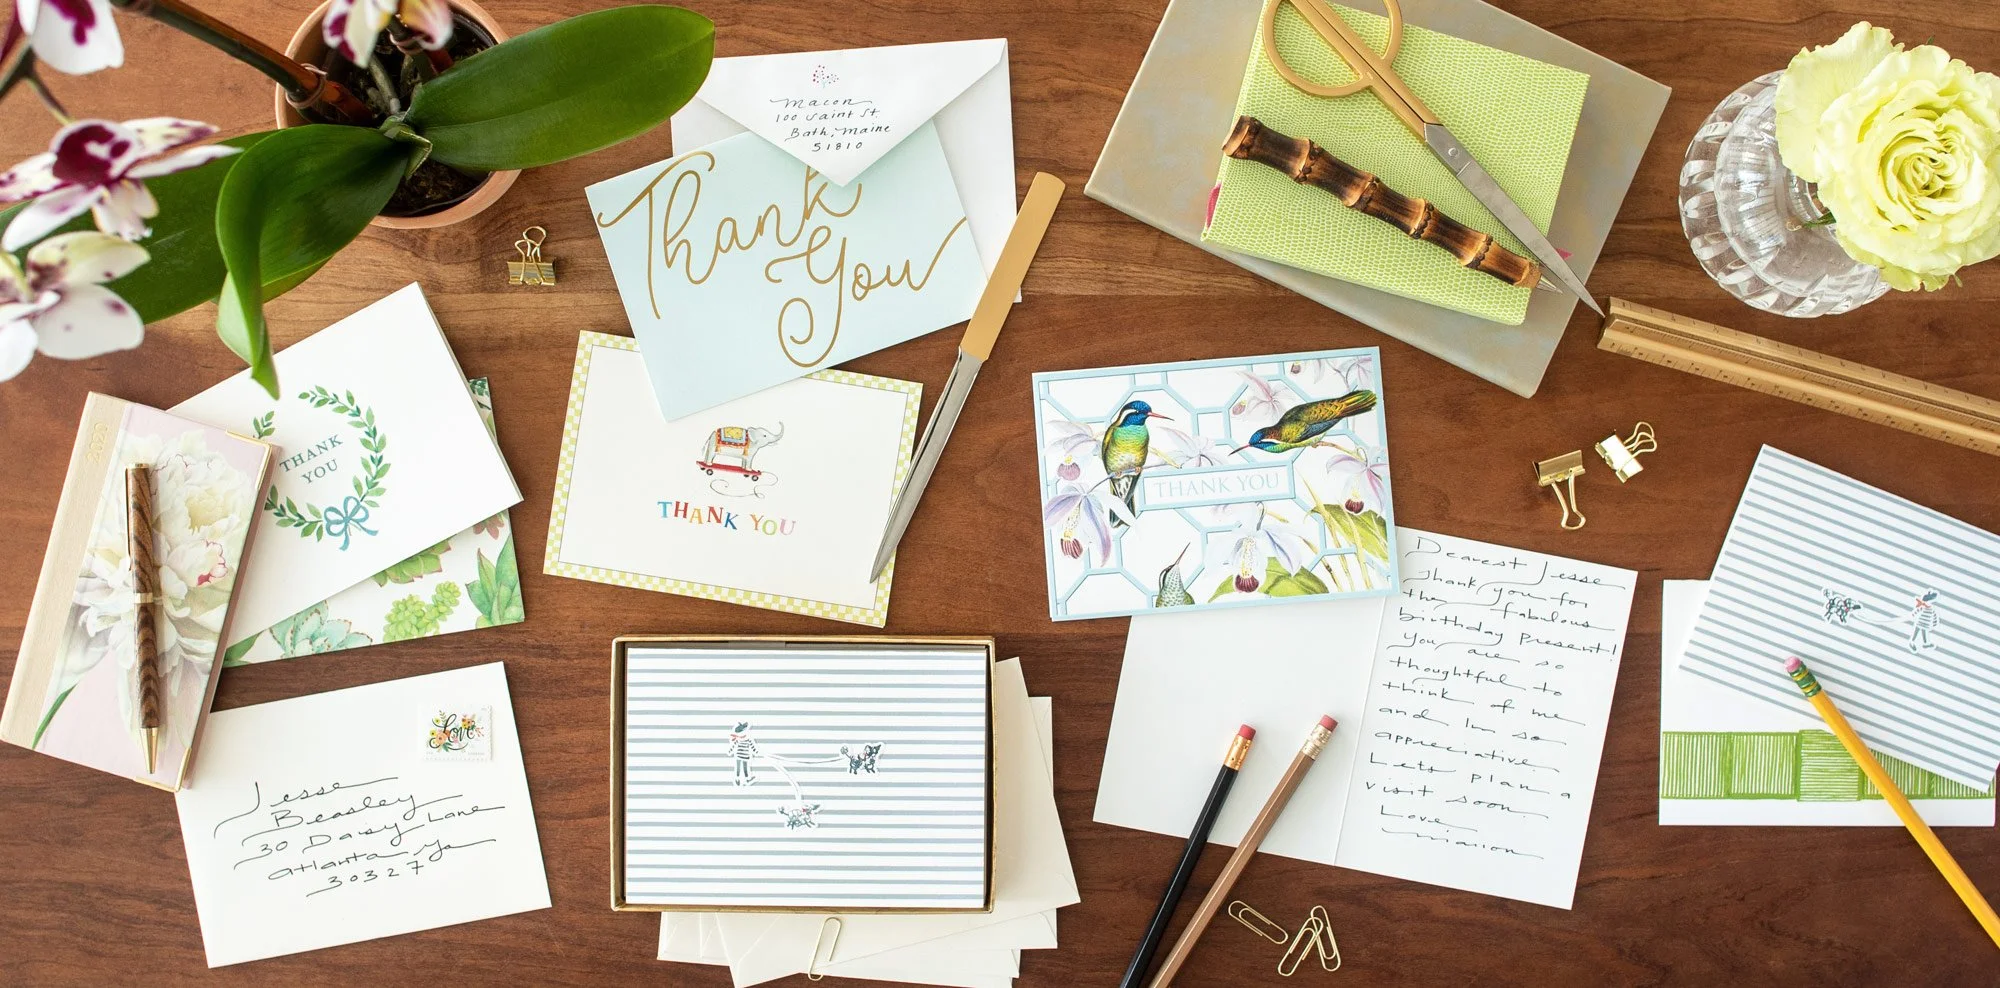 macon
100 saint st.
Bath, Maine
51810
Thank
You
THANK
YOU
THANK YOU
THANK YOU
2020
Love
Jesse
Beasley
30 Daisy Lane
atlanta, ga
30327
Dearest Jesse
Thank you for
the fabulous
birthday present!
you are so
thoughtful to
think of me
and Im so
appreciative.
Lets plan a
visit soon.
Love,